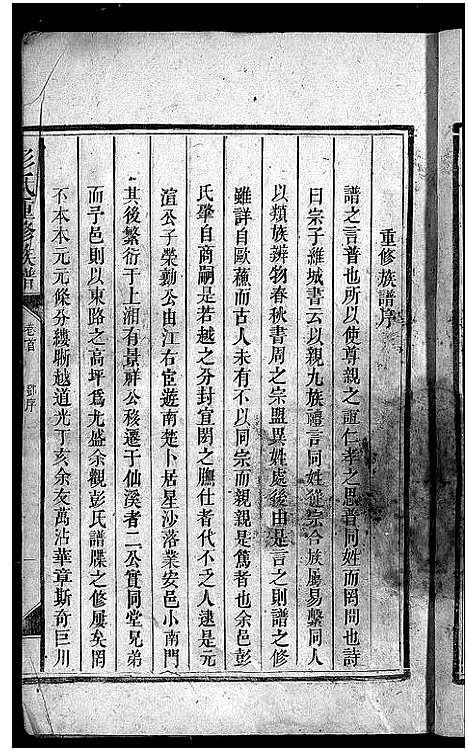 重修族譜序
譜之言普也所以使尊親之誼仁孝之思普同姓而罔間也詩
曰宗子維城書云以親九族禮言同姓從宗合族屬易繫同人
以類族辨物春秋書周之宗盟異姓處後由是言之則譜之修
雖詳自歐蘇而古人未有不以同宗而親親是篤者也余邑彭
氏肇自商嗣是若越之分封宜閎之膴仕者代不之人逮是元
渲公子榮勳公由江右宦遊南楚卜居星沙落業安邑小南門
其後繁衍于上湘有景祥公移遷于仙溪者二公實同堂兄弟
而予邑則以東路之高坪為尤盛余觀彭氏譜牒之修屢矣罔
不本本元元條分縷晰越道光丁亥余友萬沾華章斯奇巨川
彭氏重修族譜
卷首
鄧序